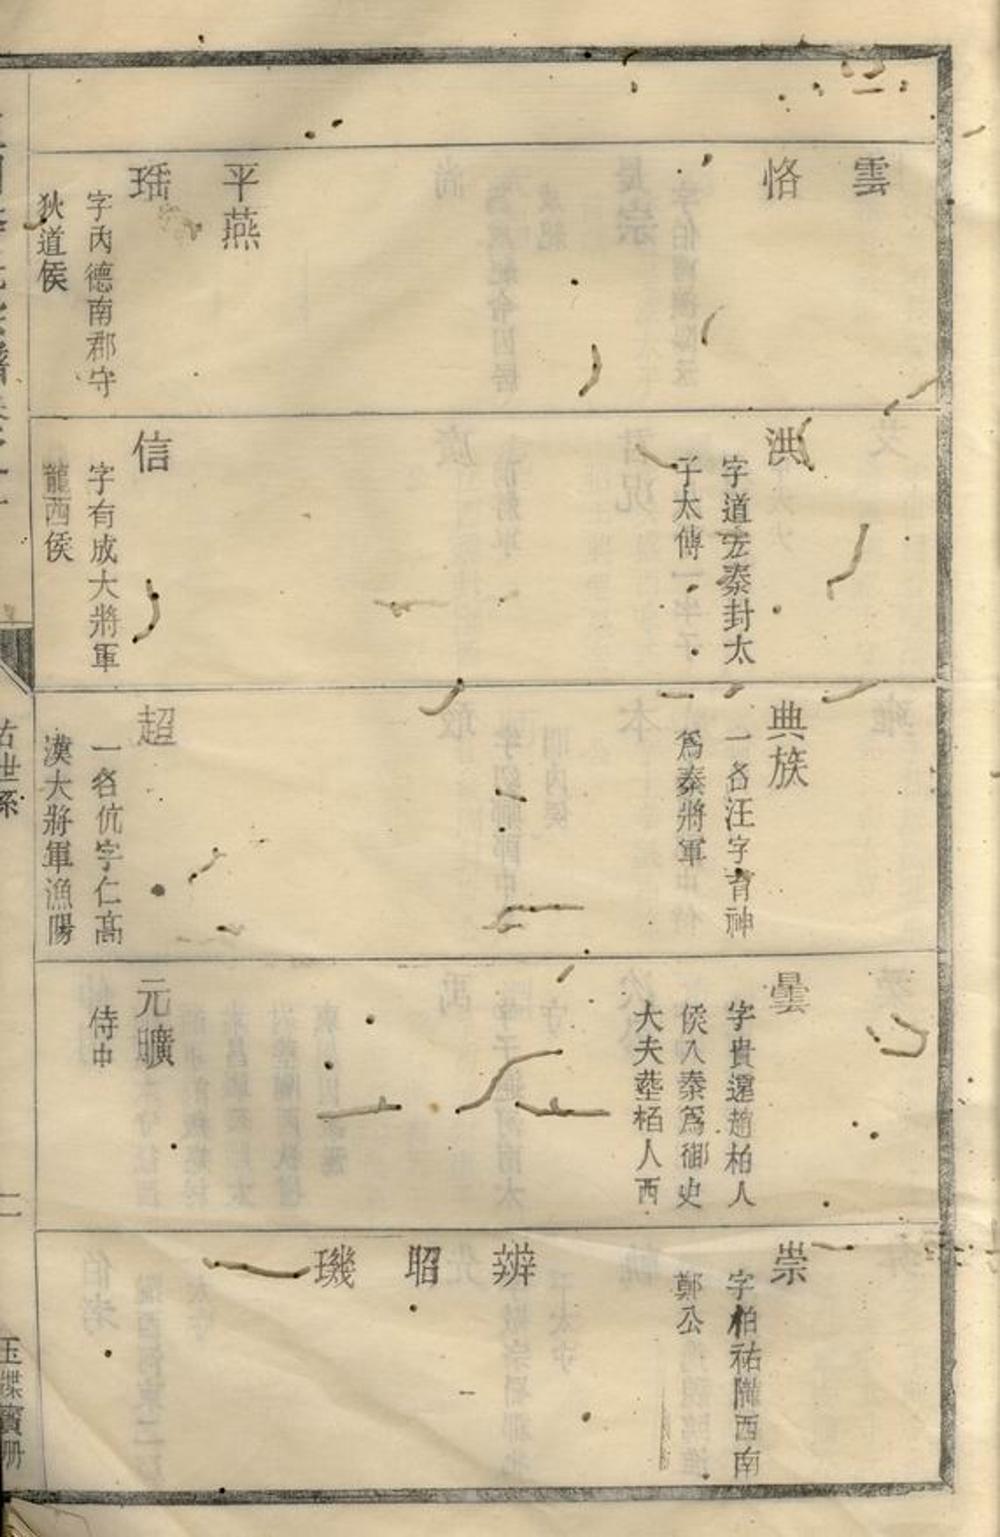 雲
恪
平燕
瑤
字內德南郡守
狄道侯
洪
字道宏秦封太
子太傅
信
字有成大將軍
隴西侯
典族
一名汪字育神
爲秦將軍
超
一名伉字仁高
漢大將軍漁陽
曇
字貴還趙柏人
侯入秦爲御史
大夫塟栢人西
元曠
侍中
崇
字柏祐隴西南
鄭公
辨
昭
璣
右世系
二
玉牒寶册